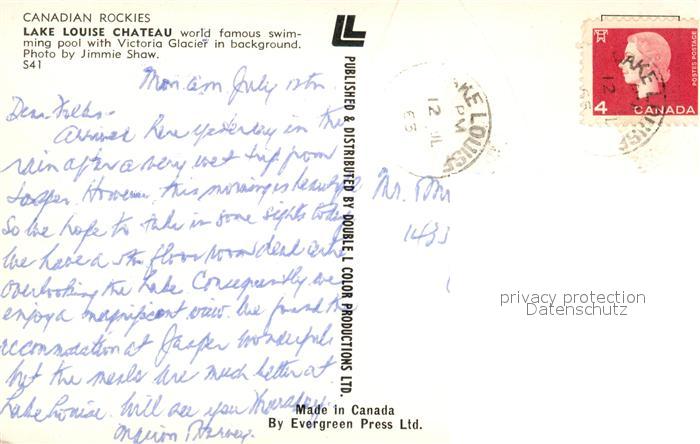 CANADIAN ROCKIES
LAKE LOUISE CHATEAU world famous swim-
ming pool with Victoria Glacier in background.
Photo by Jimmie Shaw.
S41
Mon am July 12th
Dear Folks-
Arrived here yesterday in the
rain after a very wet trip from
Jasper. However this morning is beautiful
So we hope to take in some sights today
We have a 5th floor room dead centre
overlooking the Lake Consequently we
enjoy a magnificent view. We found the
accommodation at Jasper wonderful
but the meals are much better at
Lake Louise. Will see you Thursday.
Marion
PUBLISHED & DISTRIBUTED BY DOUBLE L COLOR PRODUCTIONS LTD.
LAKE LOUISE
PM
12 JL
65
4 CANADA
POSTES POSTAGE
LAKE LOUISE
12
65
Mr.
1433
privacy protection
Datenschutz
Made in Canada
By Evergreen Press Ltd.